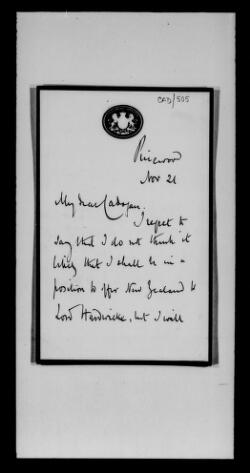 CAD/505
Pinewood
Nov 21
My dear Cadogan.
I regret to
say that I do not think it
likely that I shall be in a
position to offer New Zealand to
Lord Hardwicke, but I will